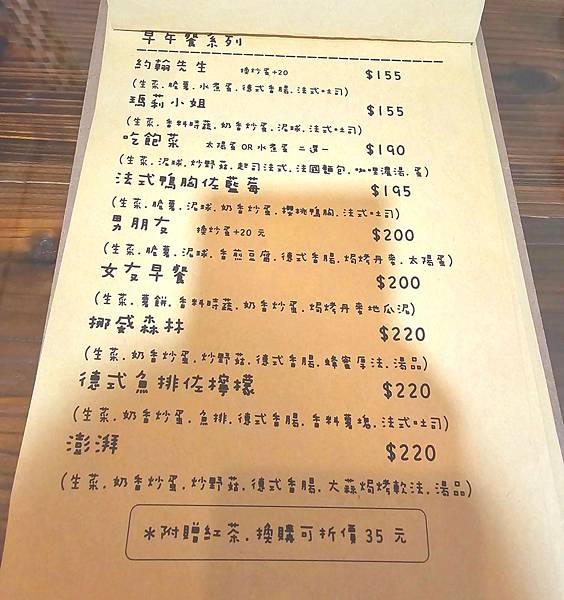 早午餐系列
約翰先生 換炒蛋+20 $155
(生菜.脆薯.水煮蛋.德式香腸.法式吐司)
瑪莉小姐 $155
(生菜.香料時蔬.奶香炒蛋.泥球.法式吐司)
吃飽菜 太陽蛋 OR 水煮蛋 二選一 $190
(生菜.泥球.炒野菇.起司法式.法國麵包.咖哩濃湯.蛋)
法式鴨胸佐藍莓 $195
(生菜.脆薯.泥球.奶香炒蛋.櫻桃鴨胸.法式吐司)
男朋友 換炒蛋+20 元 $200
(生菜.脆薯.泥球.香煎豆腐.德式香腸.焗烤丹麥.太陽蛋)
女友早餐 $200
(生菜.薯餅.香料時蔬.奶香炒蛋.焗烤丹麥地瓜泥)
挪威森林 $220
(生菜.奶香炒蛋.炒野菇.德式香腸.蜂蜜厚法.湯品)
德式魚排佐檸檬 $220
(生菜.奶香炒蛋.魚排.德式香腸.香料薯塊.法式吐司)
澎湃 $220
(生菜.奶香炒蛋.炒野菇.德式香腸.大蒜焗烤軟法.湯品)
*附贈紅茶.換購可折價 35 元